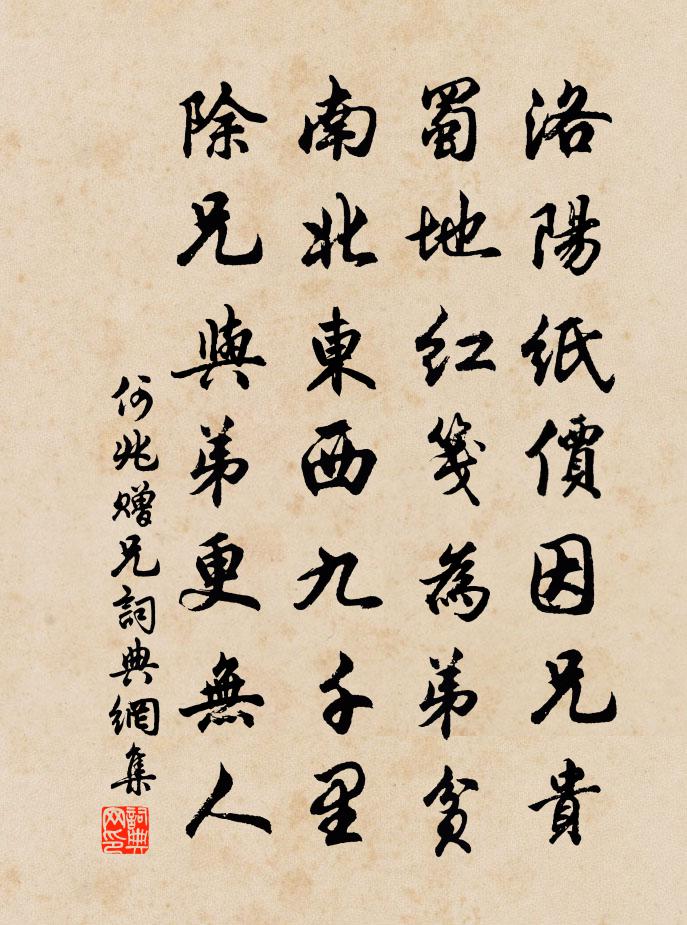 洛陽紙價因兄貴
蜀地紅箋為弟貧
南北東西九千里
除兄與弟更無人
何兆贈兄詞典網集
詞典網印